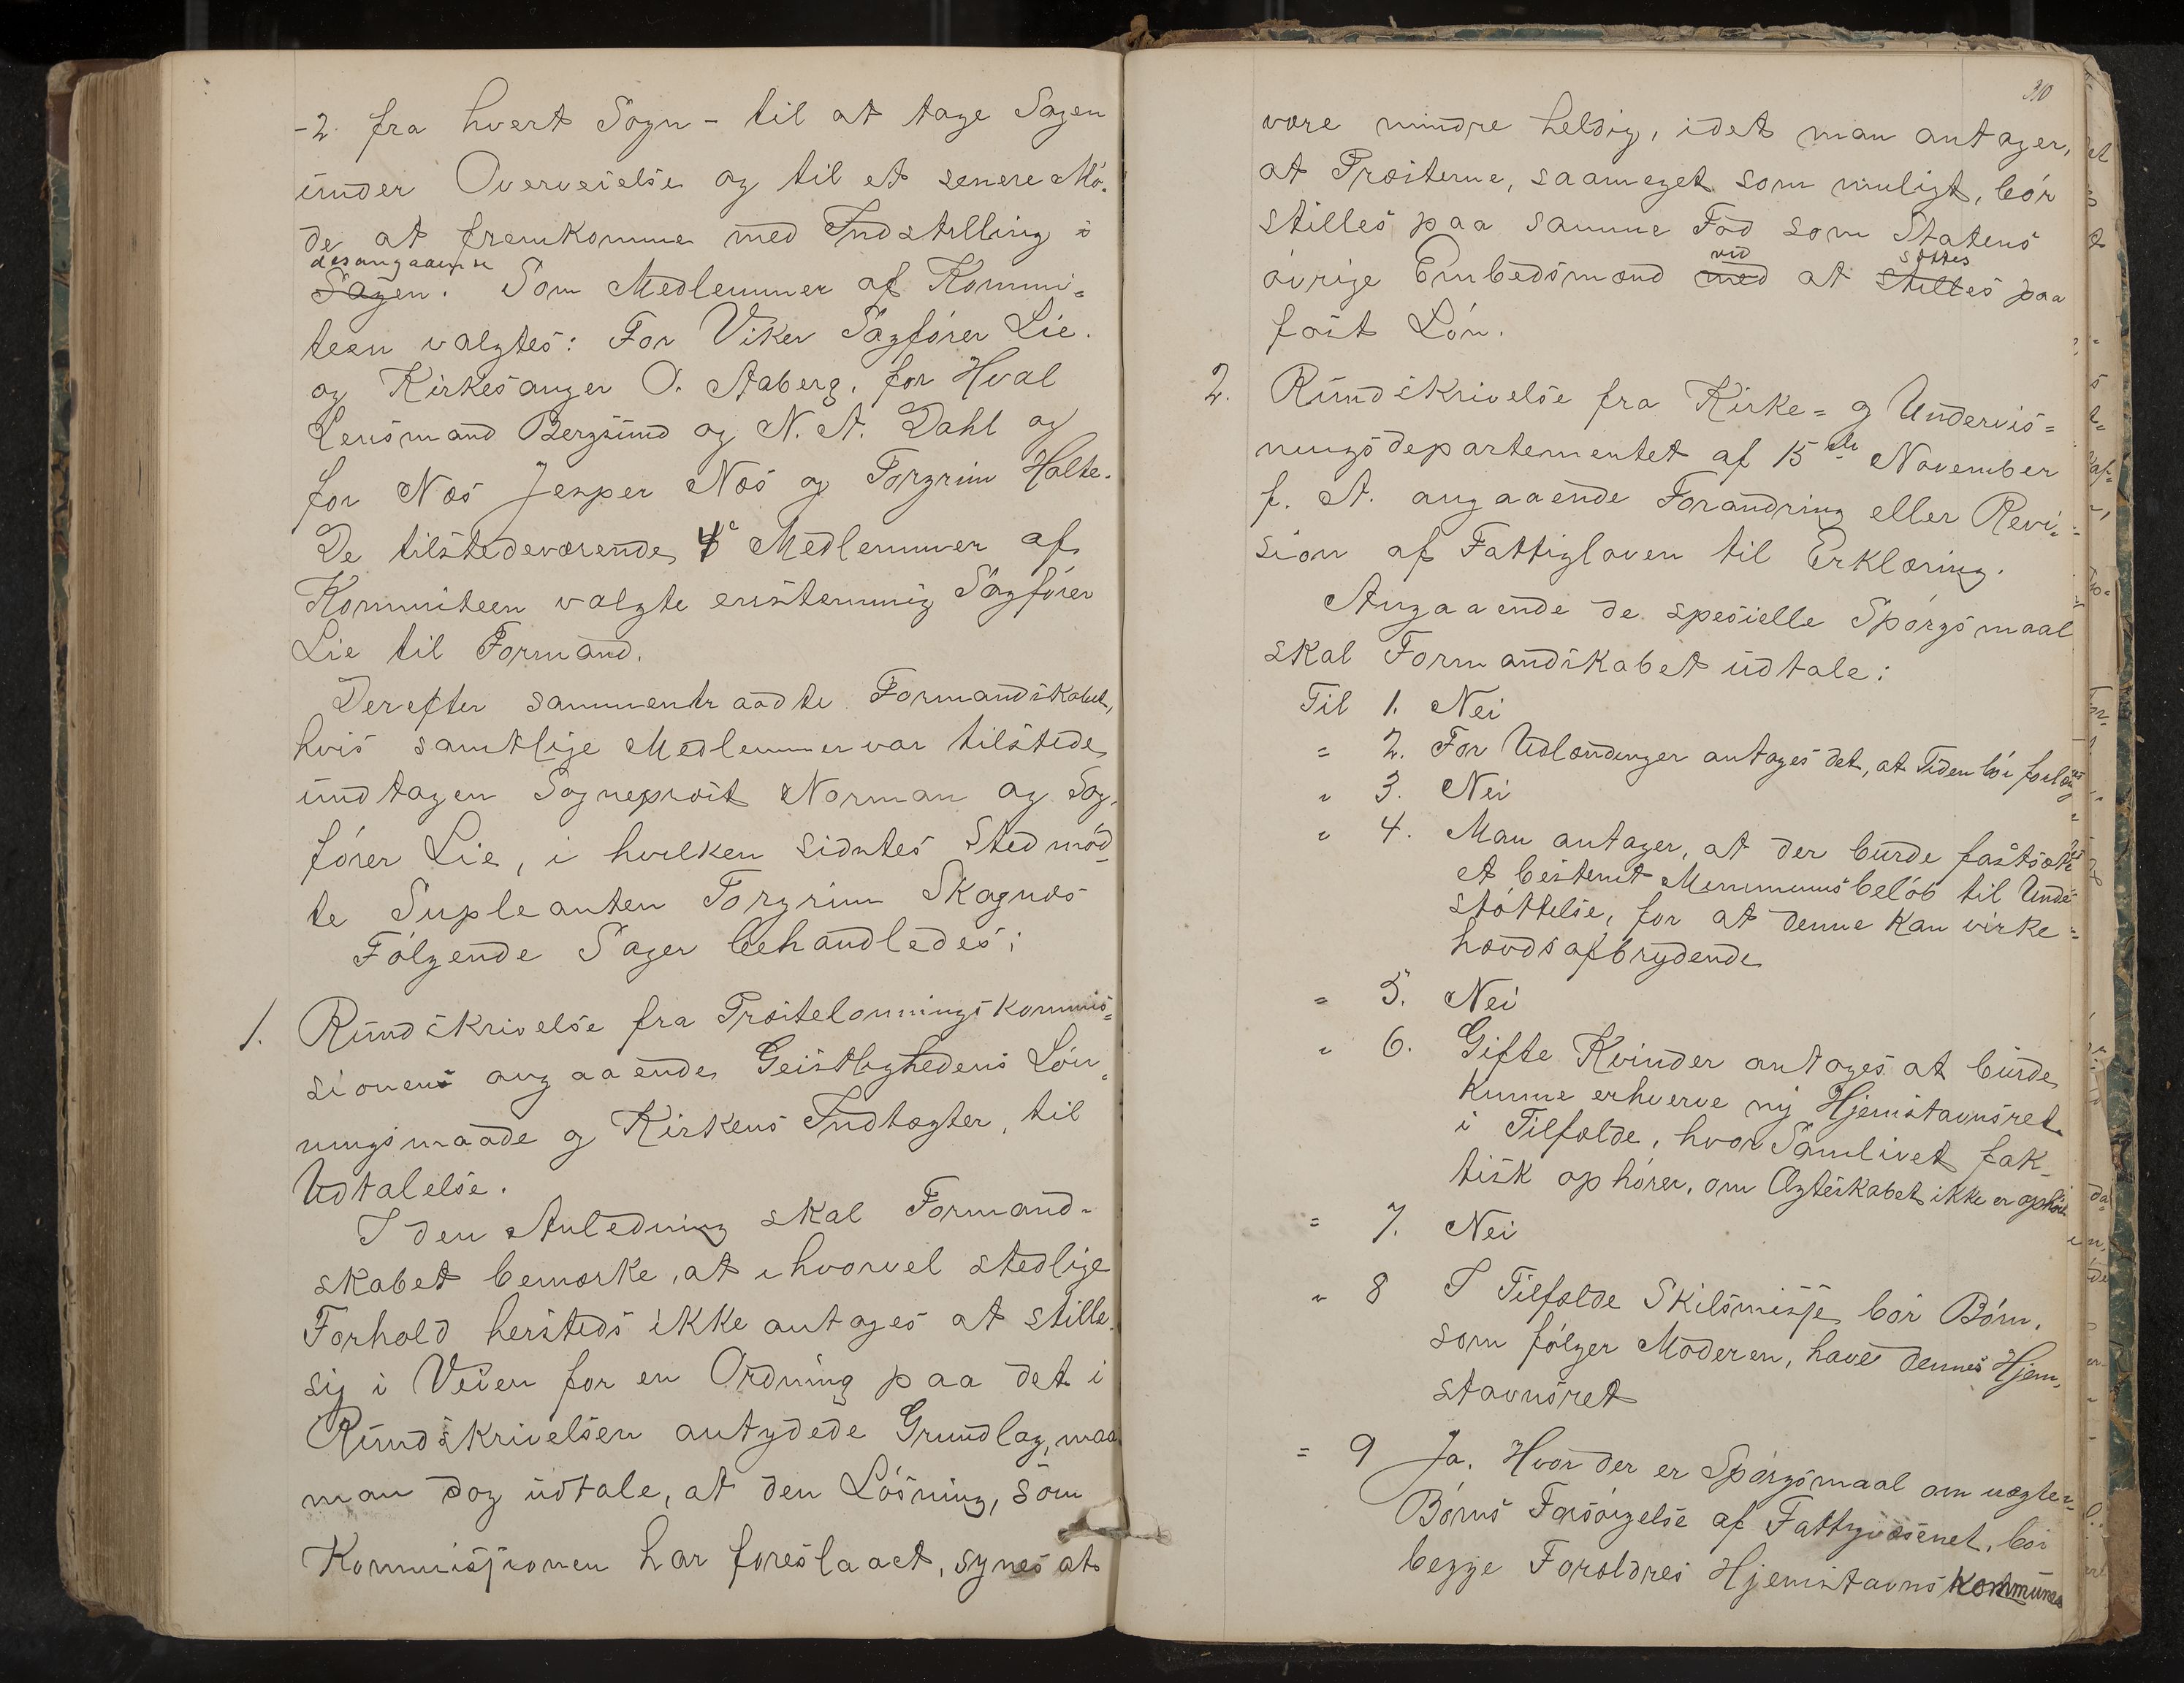 -2 fra hvert Sogn - til at tage Sagen
under Overveielse og til et senere Mö-
de at fremkomme med Indstilling i
desangaaende
Sagen. Som Medlemmer af Kommi=
teen valgtes: For Viker Sagförer Lie.
og Kirkesanger O. Aaberg, for Hval
Lensmand Bergsund og N. A. Dahl og
for Næs Jesper Næs og Torgrim Holte.
De tilstedeværende 4 Medlemmer af
Kommiteen valgte enstemmig Sagförer
Lie til Formand.
Derefter sammentraadte Formandskabet,
hvis samtlige Medlemmer var tilstede
undtagen Sogneprest Norman og Sag-
förer Lie, i hvilken sidstes Sted möd-
te Supleanten Torgrim Skagnæs
Fölgende Sager behandledes:
1. Rundskrivelse fra Prestelönningskommis=
sionens angaaende Geistlighedens Lön-
ningsmaade og Kirkens Indtægter, til
Udtalelse.
I den Anledning skal Formand-
skabet bemærke, at ihvorvel stedlige
Forhold hersteds ikke antages at stille
sig i Veien for en Ordning paa det i
Rundskrivelsen antydede Grundlag, maa
man dog udtale, at den Lösning, som
Kommissionen har foreslaaet, synes at
310
være mindre heldig, idet man antager,
at Præsterne, saameget som muligt, bör
stilles paa samme Fod som Statens
ved sættes
övrige Embedsmænd med at stilles paa
fast Lön.
2. Rundskrivelse fra Kirke= og Undervis=
ningsdepartementet af 15de November
f. A. angaaende Forandring eller Revi-
sion af Fattigloven til Erklæring.
Angaaende de spesielle Spörgsmaal
skal Formandskabet udtale:
Til 1. Nei
" 2. For Udlændinger antages det, at Tiden bör forlænges
" 3. Nei
" 4. Man antager, at der burde fastsættes
et bestemt Minimumsbelöb til Under-
stöttelse, for at denne kan virke
hævdsafbrydende
" 5. Nei
" 6. Gifte Kvinder antages at burde
kunne erhverve ny Hjemstavnsret
i Tilfælde, hvor Samlivet fak-
tisk ophörer, om Ægteskabet ikke er ophört
" 7. Nei
" 8 I Tilfælde Skilsmisse bör Börn,
som fölger Moderen, have dennes Hjem-
stavnsret
" 9 Ja. Hvor der er Spörgsmaal om uægte
Börns Forsörgelse af Fattigvæsenet, bör
begge Forældres Hjemstavnskommuner